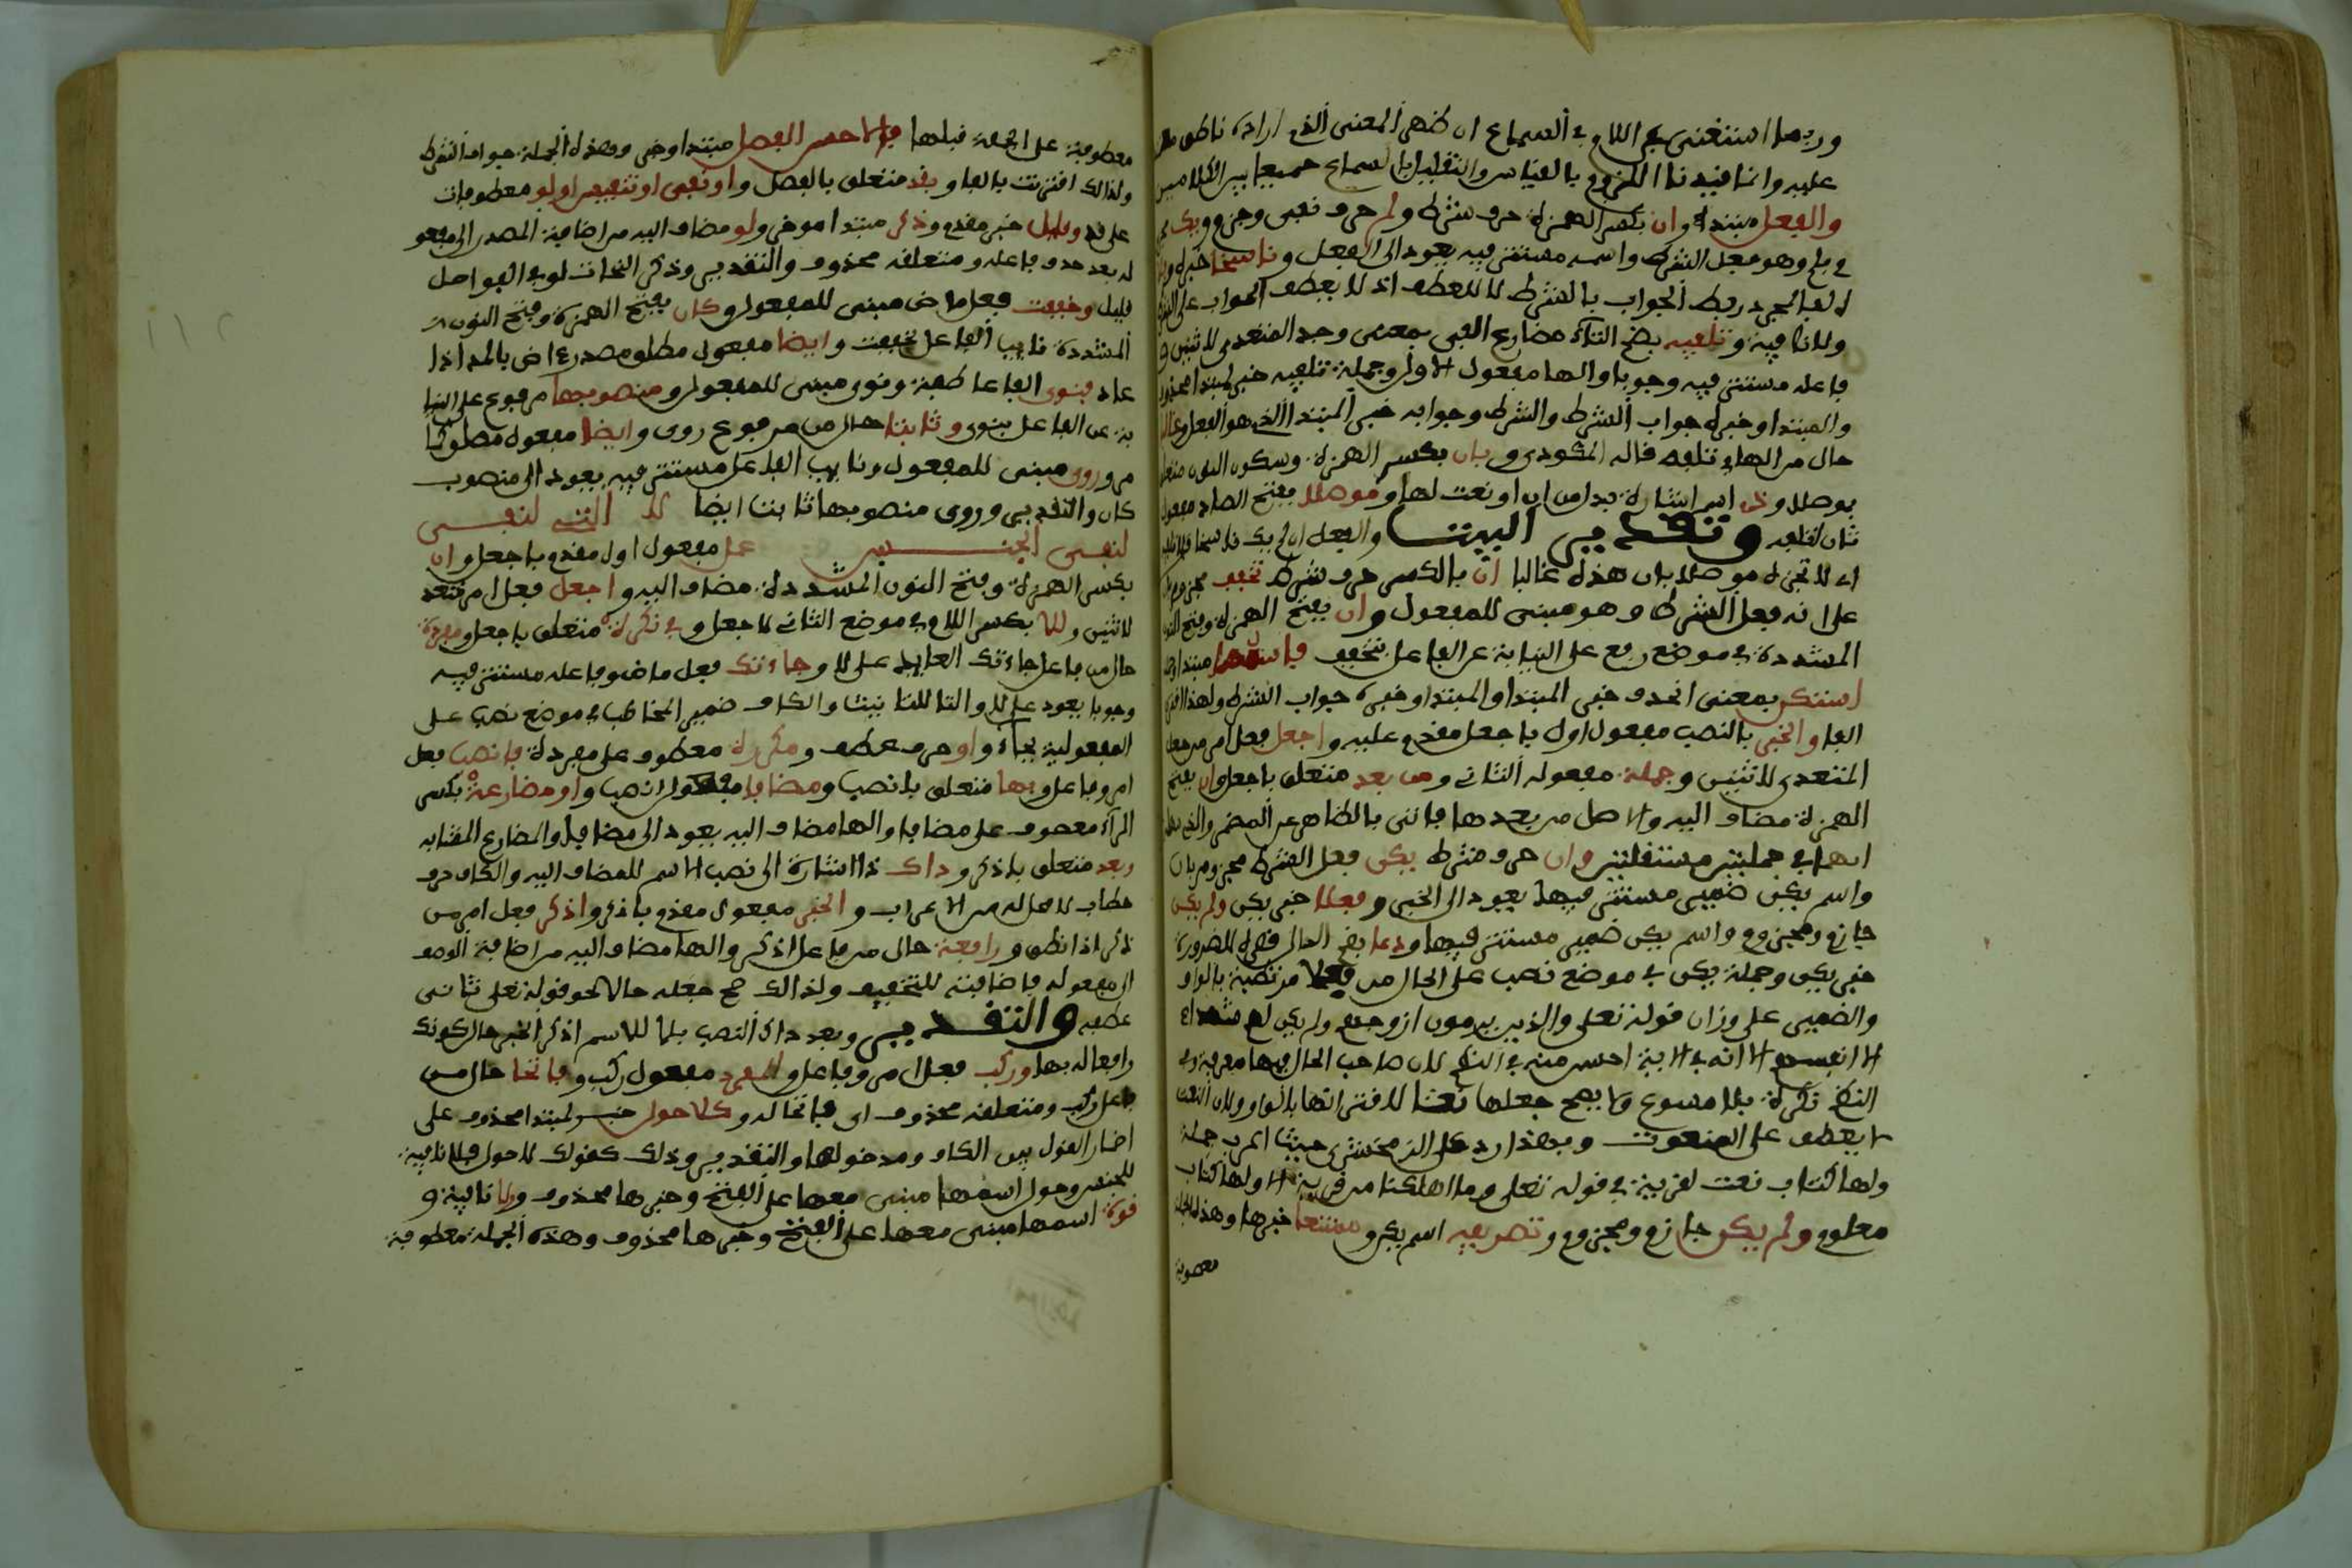 وربما استغنى في اللام في السماع ان ظهر المعنى الذي اراده ناطق
عليه وانما قيدنا اللزوم بالقياس والتقليل بالسماع جمعا بين الكلامين
والفعل مبتدا وان بكسر الهمزة حرف شرط ولم حرف نفي وجزم ويك
وهو فعل الشرط واسمه مستتر فيه يعود الى الفعل وناسخا خبره
الفا لمجرد ربط الجواب بالشرط لا للعطف اذ لا يعطف الجواب على الشرط
ولا نافية وتلفيه بضم التاء مضارع الفى بمعنى وجد المتعدي لاثنين و
فاعله مستتر فيه وجوبا والها مفعول الاول وجملة تلفيه خبر لمبتدا محذوف
والمبتدا وخبره جواب الشرط والشرط وجوابه خبر المبتدا الذي هو الفعل وغالبا
حال من الهاء تلفه قاله المكودي وبان بكسر الهمزة وسكون النون متعلق
بموصلا وذي اسم اشارة بدل من ان او نعت لها وموصلا بفتح الصاد مفعول
ثان لتلفيه وتقدير البيت والفعل ان لم يك ناسخا فلا تلفيه
اي لا تجده موصلا بان هذه غالبا ان بالكسر حرف شرط تخفف مجزوم
على انه فعل الشرط وهو مبني للمفعول وان بفتح الهمزة وفتح النون
المشددة في موضع رفع على النيابة عن الفاعل بتخفف فاسمها مبتدا و
استكن بمعنى انحذف خبر المبتدا والمبتدا وخبره جواب الشرط ولهذا اقترن
الفا والخبر بالنصب مفعول اول باجعل مقدم عليه واجعل فعل امر من جعل
المتعدي لاثنين وجملة مفعوله الثاني ومن بعد متعلق باجعل وان بفتح
الهمزة مضاف اليه والاصل من بعدها فاتى بالظاهر عن المضمر والذي
انهما في جملتين مستقلتين وان حرف شرط يكن فعل الشرط مجزوم بان
واسم يكن ضمير مستتر فيها يعود الى الخبر وفعلا خبر يكن ولم يكن
جازم ومجزوم واسم يكن ضمير مستتر فيها ودعا بضم الدال قصره للضرورة
خبر يكن وجملة يكن في موضع نصب على الحال من فعلا مرتبطة بالواو
والضمير على وزان قوله تعلى والذين يرمون ازوجهم ولم يكن لهم شهداء
الا انفسهم الا انه في الاية احسن منه في النظم لان صاحب الحال فيها معرفة وفي
النظم نكرة بلا مسوغ ولا يصح جعلها نعتا لاقترانها بالواو ولان النعت
لا يعطف على المنعوت وبهذا رد على الزمخشري حيث اعرب جملة
ولها كتاب نعت لقرية في قوله تعلى وما اهلكنا من قرية الا ولها كتاب
معلوم ولم يكن جازم ومجزوم وتصريفه اسم يكن وممتنعا خبرها وهذه الجملة
معطوفة
معطوفة على الجملة قبلها فالاحسن الفصل مبتدا وخبر وهذه الجملة جواب الشرط
ولذالك اقترنت بالفا وبقد متعلق بالفصل واو نفي او تنفيس او لو معطوفات
على قد وقليل خبر مقدم وذكر مبتدا موخر ولو مضاف اليه من اضافة المصدر الى مفعو
له بعد حذف فاعله ومتعلقه محذوف والتقدير وذكر النحات لو في الفواصل
قليل وخففت فعل ماض مبني للمفعول وكان بفتح الهمزة وفتح النون
المشددة نايب الفاعل بخففت وايضا مفعول مطلق مصدر ءاض بالمد اذا
عاد فنوي الفا عاطفة ونوي مبني للمفعول ومنصوبها مرفوع على النيا
بة عن الفاعل بنوي وثابتا حال من مرفوع روي وايضا مفعول مطلق
وروي مبني للمفعول ونايب الفاعل مستتر فيه يعود الى منصوب
كان والتقدير وروي منصوبها ثابتا ايضا لا التي لنفي
لنفي الجنس عمل مفعول اول مقدم باجعل وان
بكسر الهمزة وفتح النون المشددة مضاف اليه واجعل فعل امر متعد
لاثنين وللا بكسر اللام في موضع الثاني لاجعل وفي نكرة متعلق باجعل ومفردة
حال من فاعل جاءتك العايد على لا وجاءتك فعل ماض وفاعله مستتر فيه
وجوبا يعود على لا والتا للتانيث والكاف ضمير المخاطب في موضع نصب على
المفعولية بجاء واو حرف عطف ومكررة معطوف على مفردة فانصب فعل
امر وفاعل وبها متعلق بانصب ومضافا مفعول انصب واو مضارعه بكسر
الراء معطوف على مضافا والها مضاف اليه يعود الى مضافا والمضارع المشابه
وبعد متعلق باذكر وذاك ذا اشارة الى نصب الاسم للمضاف اليه والكاف حرف
خطاب لا محل له من الاعراب والخبر مفعول مقدم باذكر واذكر فعل امر من
ذكر اذا نطق ورافعه حال من فاعل اذكر والها مضاف اليه من اضافة الوصف
الى مفعوله فاضافته للتخفيف ولذالك صح جعله حالا نحو قوله تعلى ثاني
عطفه والتقدير وبعد ذاك النصب بلا للاسم اذكر الخبر حال كونك
رافعا له بها وركب فعل امر وفاعل والمفرد مفعول ركب وفاتحا حال من
فاعل ركب ومتعلقه محذوف اي فاتحا له وكلا حول خبر لمبتدا محذوف على
اضمار القول بين الكاف ومدخولها والتقدير وذلك كقولك لا حول فلا نافية
للجنس وحول اسمها مبني معها على الفتح وخبرها محذوف ولا نافية و
قوة اسمها مبني معها على الفتح وخبرها محذوف وهذه الجملة معطوفة